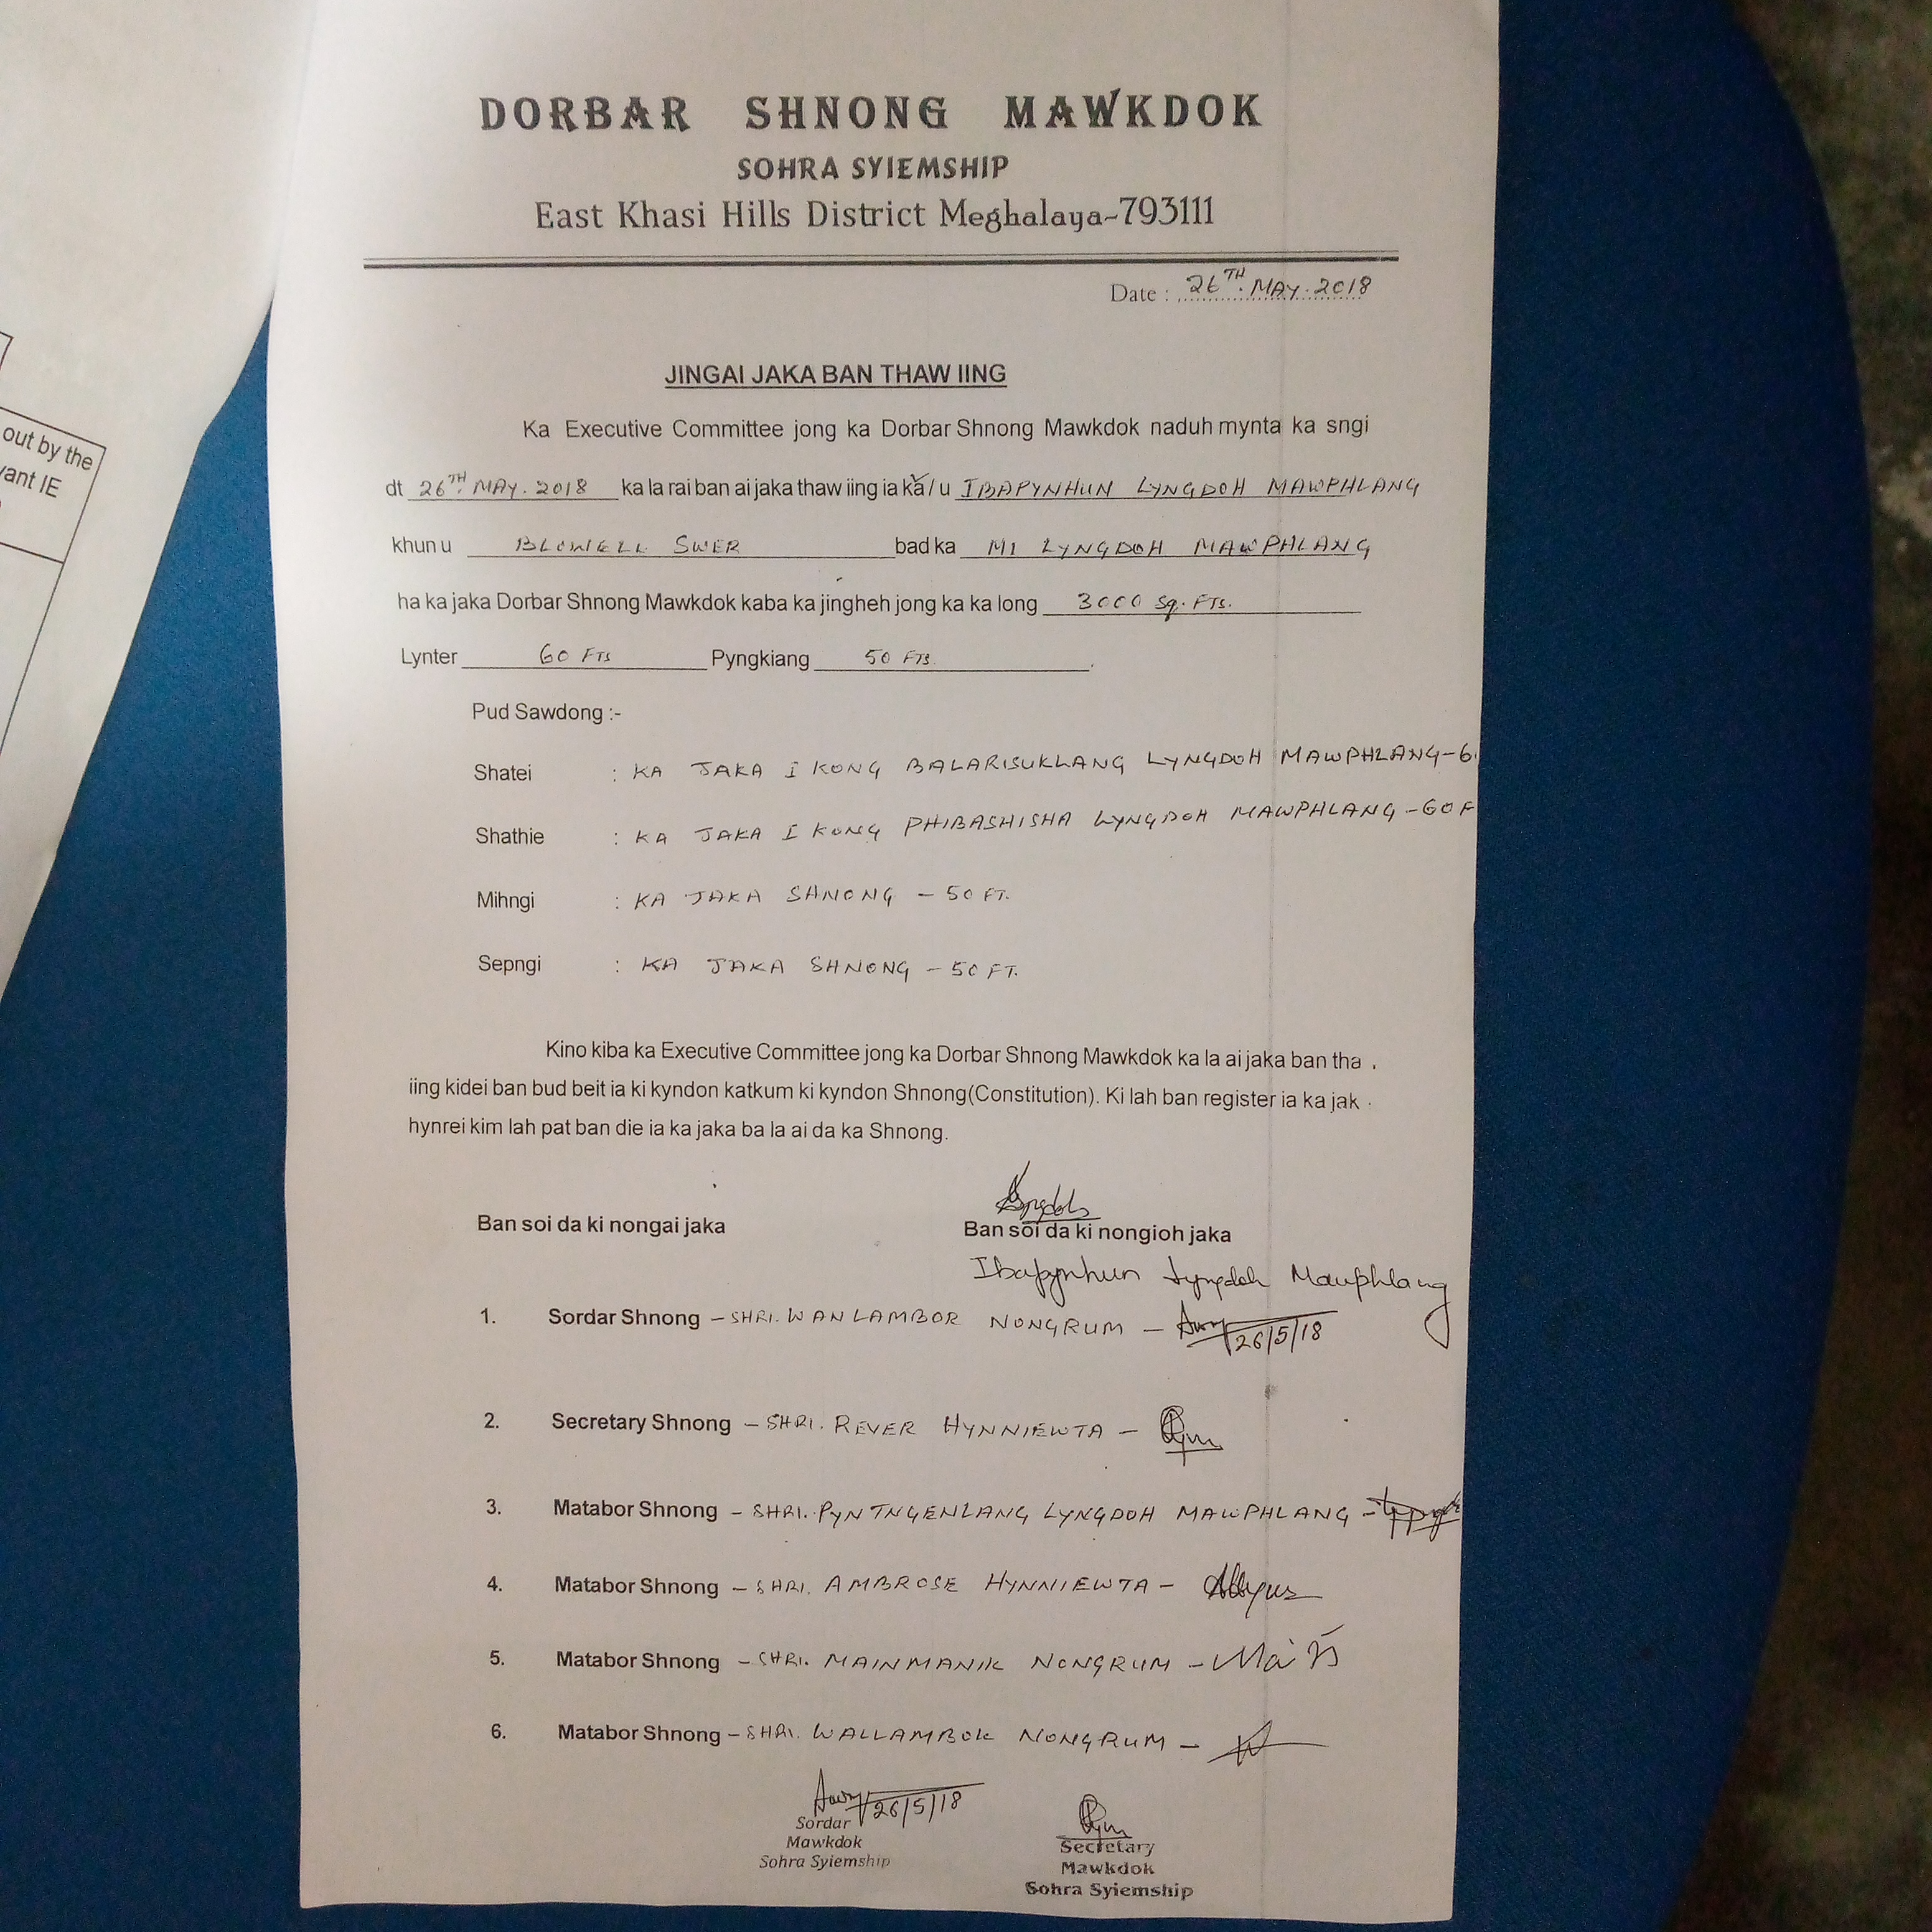 out by the
vant IE
DORBAR SHNONG MAWKDOK
SOHRA SYIEMSHIP
East Khasi Hills District Meghalaya-793111
Date : 26TH. MAY. 2018
JINGAI JAKA BAN THAW IING
Ka Executive Committee jong ka Dorbar Shnong Mawkdok naduh mynta ka sngi
dt 26TH. MAY. 2018 ka la rai ban ai jaka thaw iing ia ka / u IBAPYNHUN LYNGDOH MAWPHLANG
khun u BLOWELL SWER bad ka MI LYNGDOH MAWPHLANG
ha ka jaka Dorbar Shnong Mawkdok kaba ka jingheh jong ka ka long 3000 Sq. FTs.
Lynter 60 FTS Pyngkiang 50 FTS.
Pud Sawdong :-
Shatei : KA JAKA I KONG BALARISUKLANG LYNGDOH MAWPHLANG-6
Shathie : KA JAKA I KONG PHIBASHISHA LYNGDOH MAWPHLANG-60 F
Mihngi : KA JAKA SHNONG - 50 FT.
Sepngi : KA JAKA SHNONG - 50 FT.
Kino kiba ka Executive Committee jong ka Dorbar Shnong Mawkdok ka la ai jaka ban tha
iing kidei ban bud beit ia ki kyndon katkum ki kyndon Shnong(Constitution). Ki lah ban register ia ka jak
hynrei kim lah pat ban die ia ka jaka ba la ai da ka Shnong.
Ban soi da ki nongai jaka
Ban soi da ki nongioh jaka
Ibapynhun Lyngdoh Mawphlang
1. Sordar Shnong - SHRI. WANLAMBOR NONGRUM - 26/5/18
2. Secretary Shnong - SHRI. REVER HYNNIEWTA -
3. Matabor Shnong - SHRI. PYNTNGENLANG LYNGDOH MAWPHLANG -
4. Matabor Shnong - SHRI. AMBROSE HYNNIEWTA -
5. Matabor Shnong - SHRI. MAINMANIK NONGRUM -
6. Matabor Shnong - SHRI. WALLAMBOK NONGRUM -
26/5/18
Sordar
Mawkdok
Sohra Syiemship
Secretary
Mawkdok
Sohra Syiemship